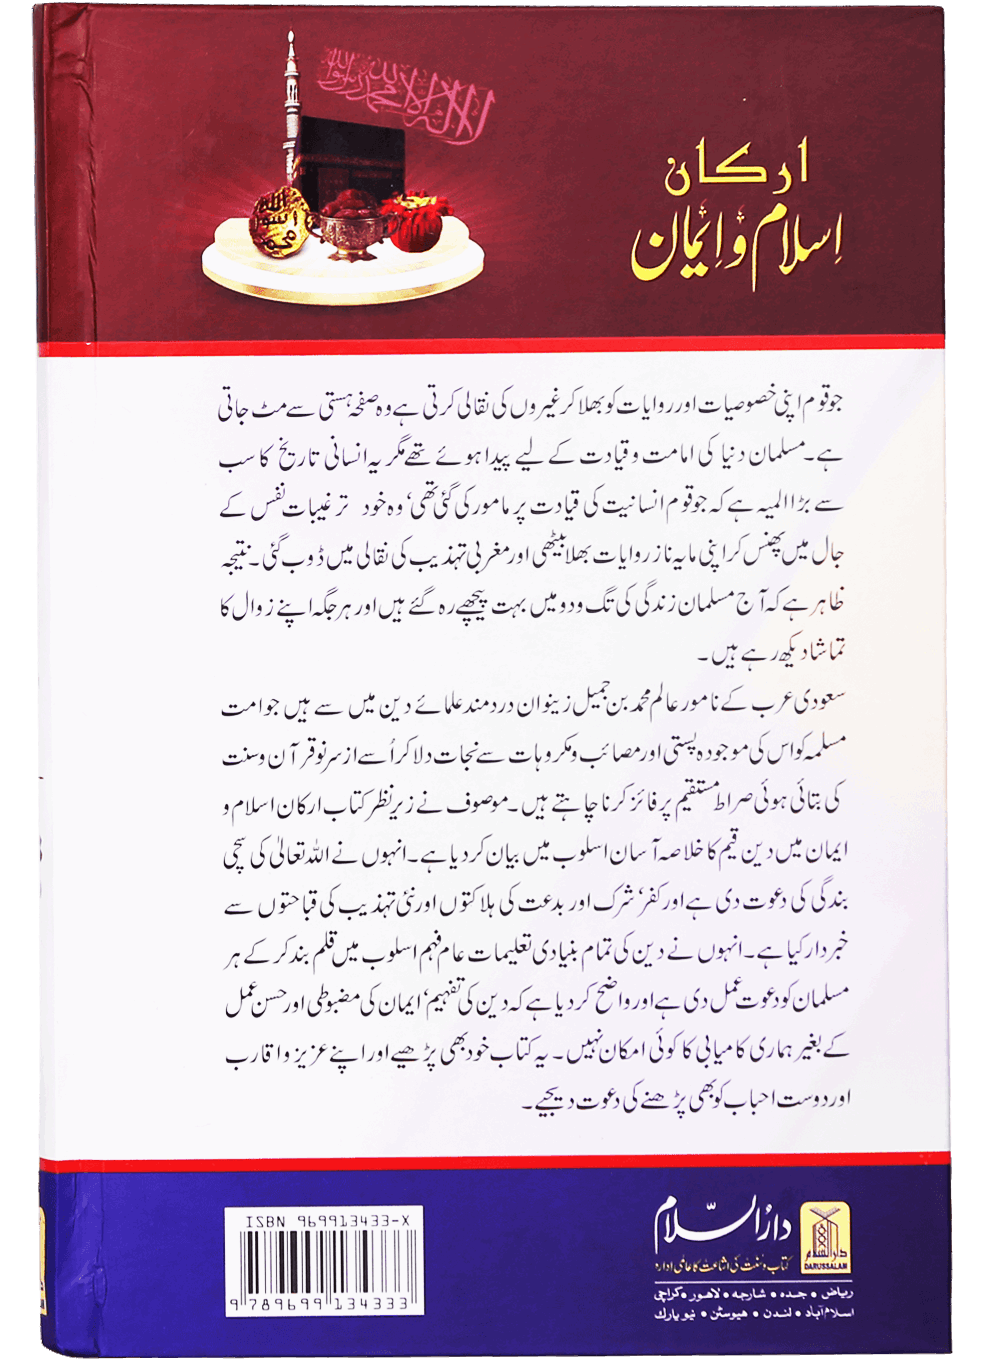 لا الہ الا اللہ محمد رسول اللہ
ارکان
اِسلام و اِیمان
اللہ
رسول
محمد
جو قوم اپنی خصوصیات اور روایات کو بھلا کر غیروں کی نقالی کرتی ہے وہ صفحہ ہستی سے مٹ جاتی
ہے۔ مسلمان دنیا کی امامت و قیادت کے لیے پیدا ہوئے تھے مگر یہ انسانی تاریخ کا سب
سے بڑا المیہ ہے کہ جو قوم انسانیت کی قیادت پر مامور کی گئی تھی، وہ خود ترغیبات نفس کے
جال میں پھنس کر اپنی مایہ ناز روایات بھلا بیٹھی اور مغربی تہذیب کی نقالی میں ڈوب گئی۔ نتیجہ
ظاہر ہے کہ آج مسلمان زندگی کی تگ و دو میں بہت پیچھے رہ گئے ہیں اور ہر جگہ اپنے زوال کا
تماشا دیکھ رہے ہیں۔
سعودی عرب کے نامور عالم محمد بن جمیل زینو ان دردمند علمائے دین میں سے ہیں جو امت
مسلمہ کو اس کی موجودہ پستی اور مصائب و مکروہات سے نجات دلا کر اُسے از سر نو قرآن و سنت
کی بتائی ہوئی صراط مستقیم پر فائز کرنا چاہتے ہیں۔ موصوف نے زیر نظر کتاب ارکان اسلام و
ایمان میں دین قیم کا خلاصہ آسان اسلوب میں بیان کر دیا ہے۔ انہوں نے اللہ تعالیٰ کی سچی
بندگی کی دعوت دی ہے اور کفر، شرک اور بدعت کی ہلاکتوں اور نئی تہذیب کی قباحتوں سے
خبردار کیا ہے۔ انہوں نے دین کی تمام بنیادی تعلیمات عام فہم اسلوب میں قلم بند کر کے ہر
مسلمان کو دعوت عمل دی ہے اور واضح کر دیا ہے کہ دین کی تفہیم، ایمان کی مضبوطی اور حسن عمل
کے بغیر ہماری کامیابی کا کوئی امکان نہیں۔ یہ کتاب خود بھی پڑھیے اور اپنے عزیز و اقارب
اور دوست احباب کو بھی پڑھنے کی دعوت دیجیے۔
ISBN 969913433-X
9 789699 134333
دارُالسّلام
کتاب و سُنّت کی اشاعت کا عالمی ادارہ
دارالسلام
DARUSSALAM
ریاض • جدہ • شارجہ • لاھور • کراچی
اسلام آباد • لندن • ھیوسٹن • نیو یارک